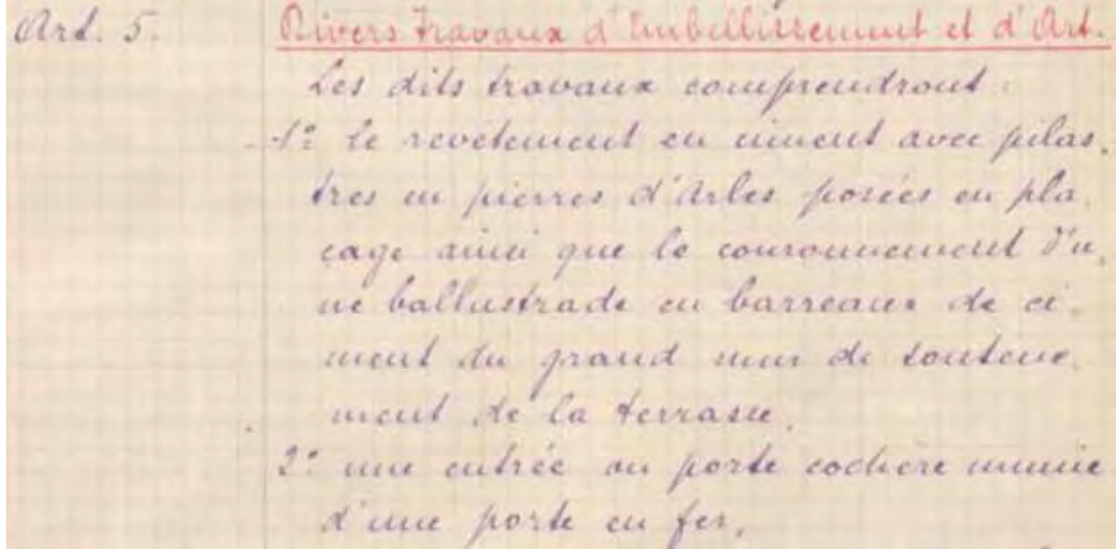 Art. 5. Divers Travaux d'Embellissement et d'Art.
Les dits travaux comprendront :
1º Le revêtement en ciment avec pilas-
tres en pierres d'Arles posées en pla-
cage ainsi que le couronnement d'u-
ne ballustrade en barreaux de ci-
ment du grand mur de soutène-
ment de la terrasse.
2º une entrée ou porte cochère munie
d'une porte en fer.